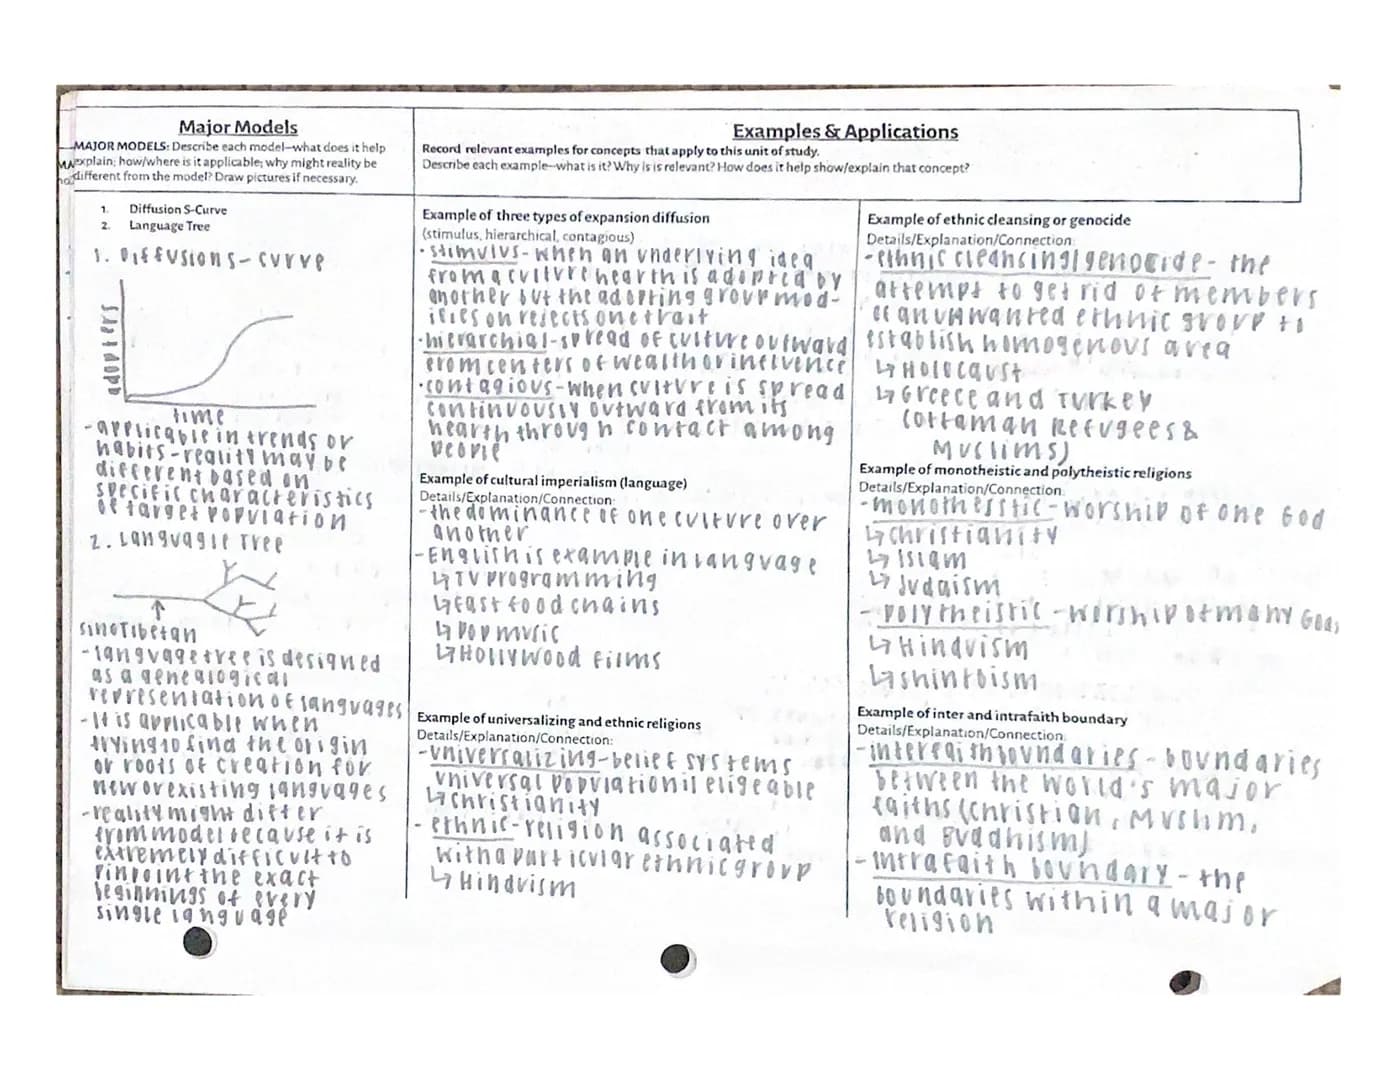 Major Models
MAJOR MODELS: Describe each model–what does it help
explain; how/where is it applicable; why might reality be
different from the model? Draw pictures if necessary.
1. Diffusion S-Curve
2. Language Tree
1. Diffusions-curve
time
-applicable in trends or
habits-reality may be
different based on
specific characteristics
of target population
2. Languagle Tree
sinoTibetan
-language tree is designed
as a genealogical
representation of languages
-it is applicable when
trying to find the origin
or roots of creation for
new or existing languages
-reality might differ
from model because it is
extremely difficult to
pinpoint the exact
beginnings of every
single language
Examples & Applications
Record relevant examples for concepts that apply to this unit of study.
Describe each example–what is it? Why is is relevant? How does it help show/explain that concept?
Example of three types of expansion diffusion
(stimulus, hierarchical, contagious)
·stimulus-when an underlying idea
from a culture hearth is adopted by
another but the adopting group mod-
ifies on rejects one trait
·hierarchial-spread of culture outward
from centers of wealth or influence
·contagious-when culture is spread
continuously outward from its
hearth through contact among
people
Example of cultural imperialism (language)
Details/Explanation/Connection:
-the dominance of one culture over
another
-English is example in language
↳TV programming
↳fast food chains
↳pop music
↳Hollywood films
Example of universalizing and ethnic religions
Details/Explanation/Connection:
-universalizing-belief systems
universal population il eligeable
↳christianity
-ethnic-religion associated
with a particular ethnic group
↳Hinduism
Example of ethnic cleansing or genocide
Details/Explanation/Connection:
-ethnic cleansing/genocide- the
attempt to get rid of members
of an unwanted ethnic group to
establish homogenous area
↳Holocaust
↳Greece and Turkey
(ottaman Refugees &
Muslims)
Example of monotheistic and polytheistic religions
Details/Explanation/Connection:
-monothesstic-worship of one God
↳christianity
↳Islam
↳Judaism
-polytheistic-worship of many Gods
↳Hinduism
↳shintoism
Example of inter and intrafaith boundary
Details/Explanation/Connection:
-interfaith boundaries-boundaries
between the world's major
faiths (christian, Muslim,
and Buddhism)
-intrafaith boundary-the
boundaries within a major
religion